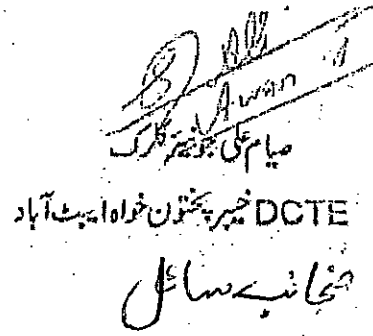 Ali
Awan
صیام علی جونیئر کلرک
DCTE خیبر پختون خواہ ایبٹ آباد
منجانب سائل